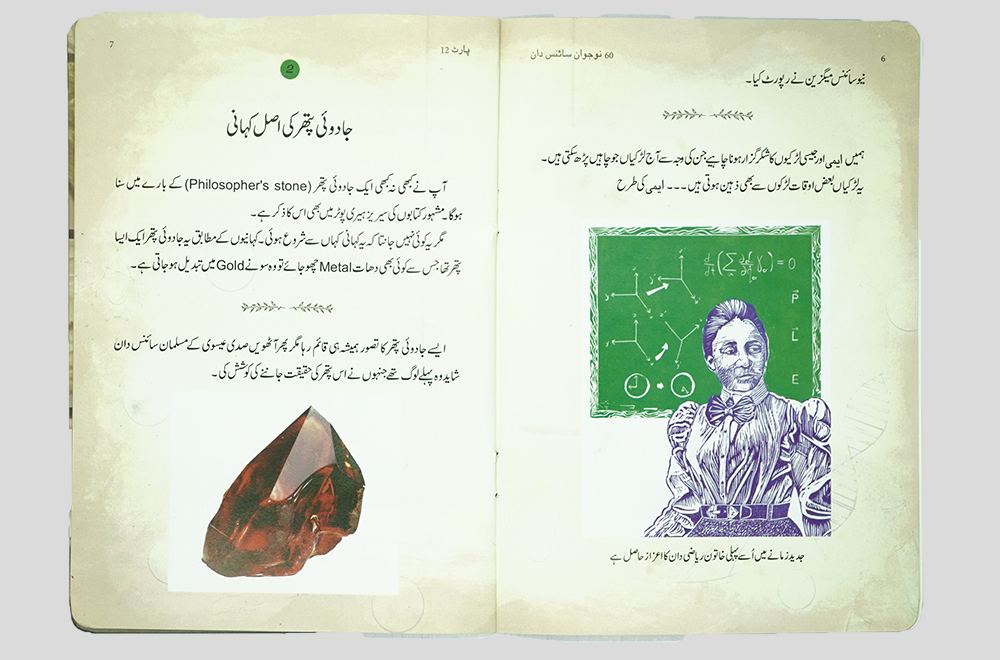 6
60 نوجوان سائنس دان
نیو سائنس میگزین نے رپورٹ کیا۔
ہمیں ایمی اور جیسی لڑکیوں کا شکر گزار ہونا چاہیے جن کی وجہ سے آج لڑکیاں جو چاہیں پڑھ سکتی ہیں۔
یہ لڑکیاں بعض اوقات لڑکوں سے بھی ذہین ہوتی ہیں ۔۔۔ ایمی کی طرح
= 0
P
L
E
جدید زمانے میں اُسے پہلی خاتون ریاضی دان کا اعزاز حاصل ہے
پارٹ 12
7
2
جادوئی پتھر کی اصل کہانی
آپ نے کبھی نہ کبھی ایک جادوئی پتھر (Philosopher's stone) کے بارے میں سنا
ہوگا۔ مشہور کتابوں کی سیریز ہیری پوٹر میں بھی اس کا ذکر ہے۔
مگر یہ کوئی نہیں جانتا کہ یہ کہانی کہاں سے شروع ہوئی۔ کہانیوں کے مطابق یہ جادوئی پتھر ایک ایسا
پتھر تھا جس سے کوئی بھی دھات Metal چھو جائے تو وہ سونے Gold میں تبدیل ہو جاتی ہے۔
ایسے جادوئی پتھر کا تصور ہمیشہ ہی قائم رہا مگر پھر آٹھویں صدی عیسوی کے مسلمان سائنس دان
شاید وہ پہلے لوگ تھے جنہوں نے اس پتھر کی حقیقت جاننے کی کوشش کی ۔